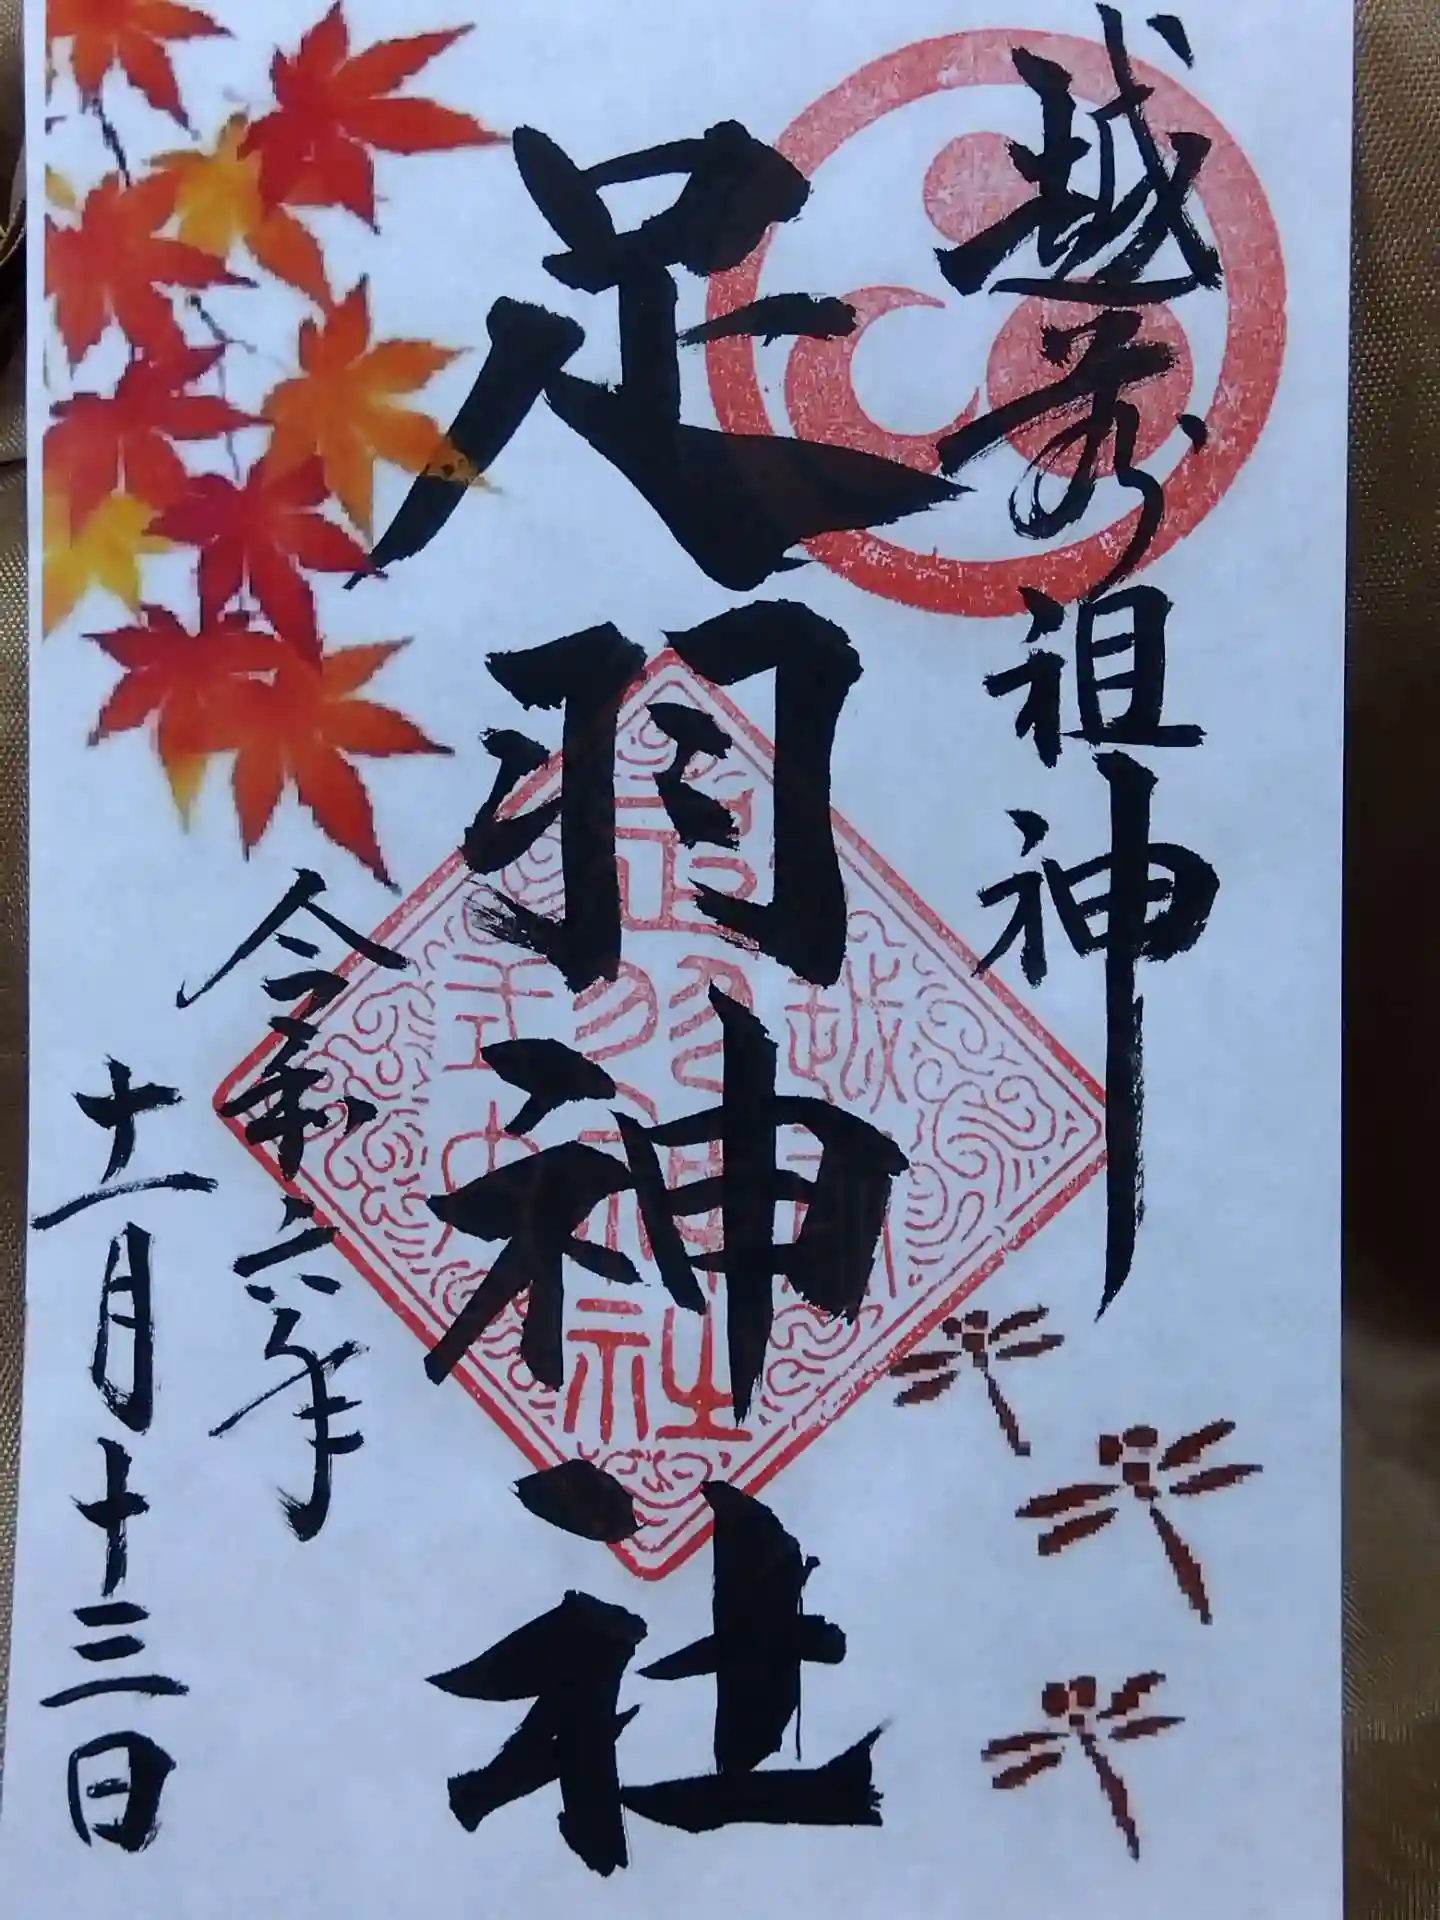 越前祖神
足羽神社
令和六年
十一月十三日
越前
足羽神社
式内